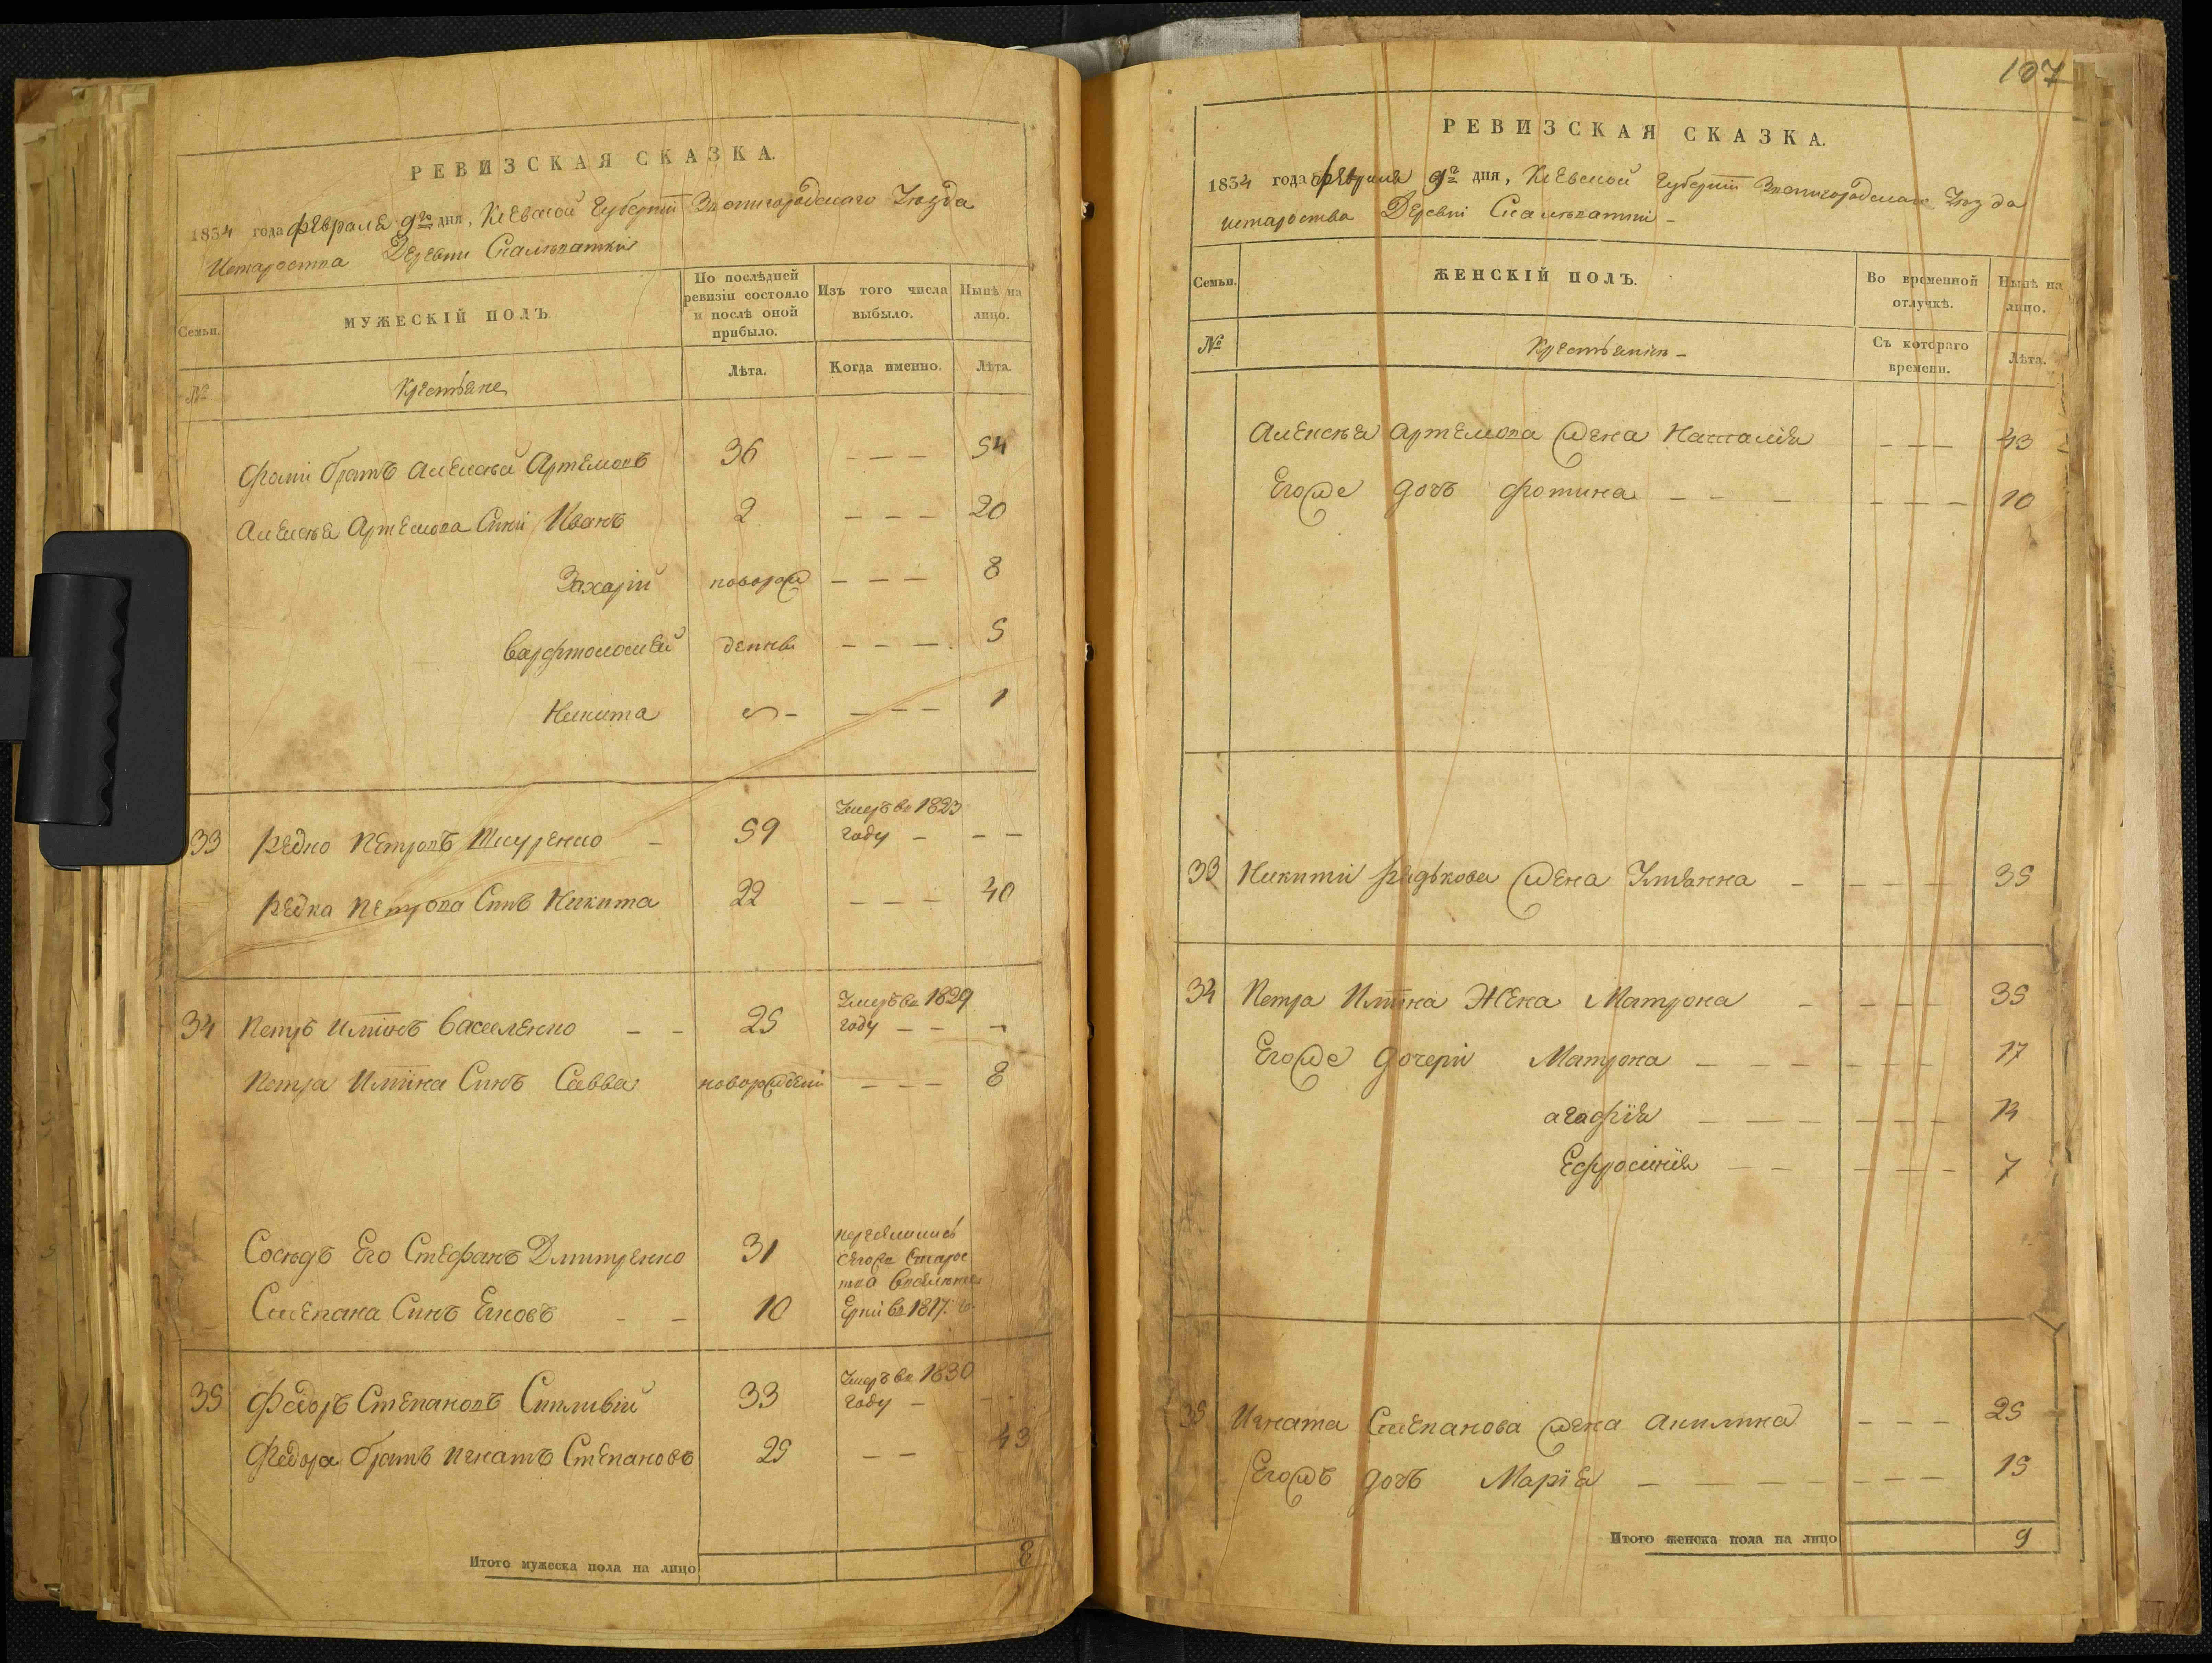 РЕВИЗСКАЯ СКАЗКА.
1834 года февраля 9го дня, Киевской Губернии Звенигородскаго Уезда
Деревни
Семьи.
МУЖЕСКІЙ ПОЛЪ.
По послѣдней ревизіи состояло и послѣ оной прибыло.
Изъ того числа выбыло.
Нынѣ на лицо.
№
Крестьяне
Лѣта.
Когда именно.
Лѣта.
братъ Алексѣй Артемовъ 36 - - - 54
Алексѣя Артемова Сини Иванъ 2 - - - 20
Захарій новорож - - - 8
Варфтоломей - - - 5
Никита - - - - 1
33 Редко Петровъ - 59 Умеръ въ 1823 году - - -
Редка Петрова Синъ Никита 22 - - - 40
34 Петръ Василенко - - 25 Умеръ въ 1829 году - - -
Петра Синъ Савва новорожденій - - - 8
Сосѣдъ Его Стефанъ Дмитренко 31
Степана Синъ - - 10 въ 1817. г.
35 Федоръ Степановъ 33 Умеръ въ 1830 году -
Федора братъ Игнатъ Степановъ 25 - - 43
Итого мужеска пола на лицо 8
107
РЕВИЗСКАЯ СКАЗКА.
1834 года февраля 9го дня, Киевской Губернии Звенигородскаго Уезда
староства Деревни
Семьи.
ЖЕНСКІЙ ПОЛЪ.
Во временной отлучкѣ.
Нынѣ на лицо.
№
Съ котораго времени.
Лѣта.
Алексѣя Артемова жена Наталия - - - 43
Егоже дочь Фотина - - - - - - 10
33 Никити Редькова жена Ульянна - - - - 35
34 Петра Жена Матрона - - - - 35
Егоже дочери Матрона - - - - - - - 17
агафія - - - - - - 14
Ефросинія - - - - - - 7
35 Игната Степанова жена Акилина - - - 25
Егожъ дочь Марія - - - - - - - 15
Итого женска пола на лицо 9